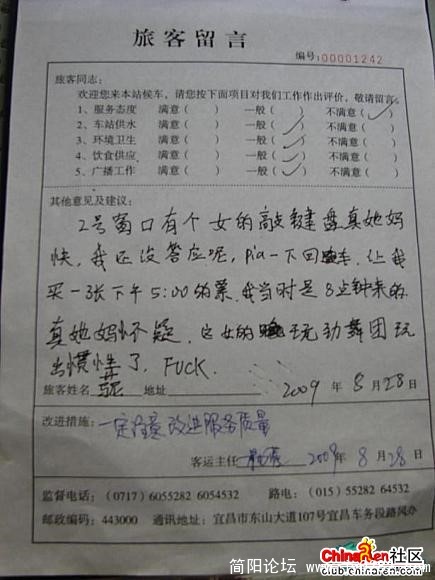 旅客留言
编号:00001242
旅客同志:
欢迎您来本站候车,请您按下面项目对我们工作作出评价,敬请留言。
1、服务态度 满意( ) 一般( ) 不满意(✓)
2、车站供水 满意( ) 一般(✓) 不满意( )
3、环境卫生 满意( ) 一般(✓) 不满意( )
4、饮食供应 满意( ) 一般(✓) 不满意( )
5、广播工作 满意( ) 一般(✓) 不满意( )
其他意见及建议:
2号窗口有个女的敲键盘真她妈
快,我还没答应呢,Pia一下回车,让我
买一张下午5:00的票,我当时是8点钟来的
真她妈怀疑,这女的 玩劲舞团玩
出惯性了,FUCK.
旅客姓名 地址 2009年8月28日
改进措施:一定注意改进服务质量
客运主任 2009年8月28日
监督电话:(0717)6055282 6054532 路电:(015)55282 64532
邮政编码:443000 通讯地址:宜昌市东山大道107号宜昌车务段路风办
简阳论坛 www.
ChinaRen社区
club.chinaren.com